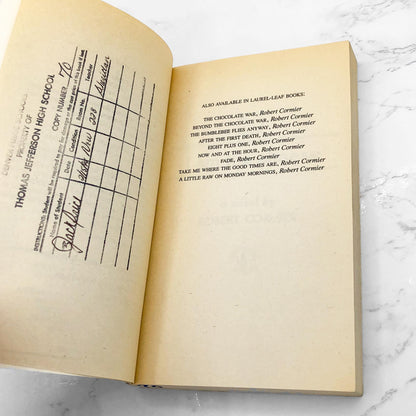 PROPERTY OF
THOMAS JEFFERSON HIGH SCHOOL
COPY NUMBER 70
Name of Student
Date
Condition
Room No.
Teacher
228
ALSO AVAILABLE IN LAUREL-LEAF BOOKS:
THE CHOCOLATE WAR, Robert Cormier
BEYOND THE CHOCOLATE WAR, Robert Cormier
THE BUMBLEBEE FLIES ANYWAY, Robert Cormier
AFTER THE FIRST DEATH, Robert Cormier
EIGHT PLUS ONE, Robert Cormier
NOW AND AT THE HOUR, Robert Cormier
FADE, Robert Cormier
TAKE ME WHERE THE GOOD TIMES ARE, Robert Cormier
A LITTLE RAW ON MONDAY MORNINGS, Robert Cormier